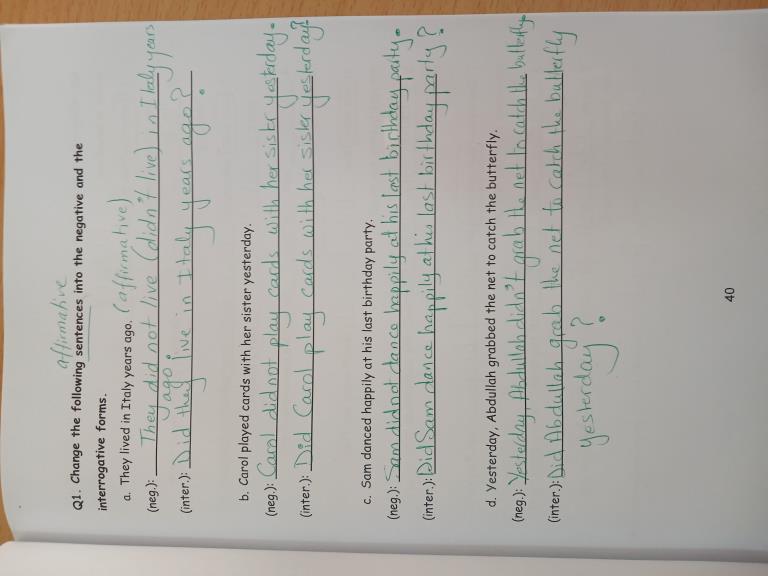 affirmative
Q1. Change the following sentences into the negative and the
interrogative forms.
a. They lived in Italy years ago. (affirmative)
(neg.): They did not live (didn't live) in Italy years
ago.
(inter.): Did they live in Italy years ago?
b. Carol played cards with her sister yesterday.
(neg.): Carol did not play cards with her sister yesterday.
(inter.): Did Carol play cards with her sister yesterday?
c. Sam danced happily at his last birthday party.
(neg.): Sam did not dance happily at his last birthday party.
(inter.): Did Sam dance happily at his last birthday party?
d. Yesterday, Abdullah grabbed the net to catch the butterfly.
(neg.): Yesterday, Abdullah didn't grab the net to catch the butterfly.
(inter.): Did Abdullah grab the net to catch the butterfly
yesterday?
40